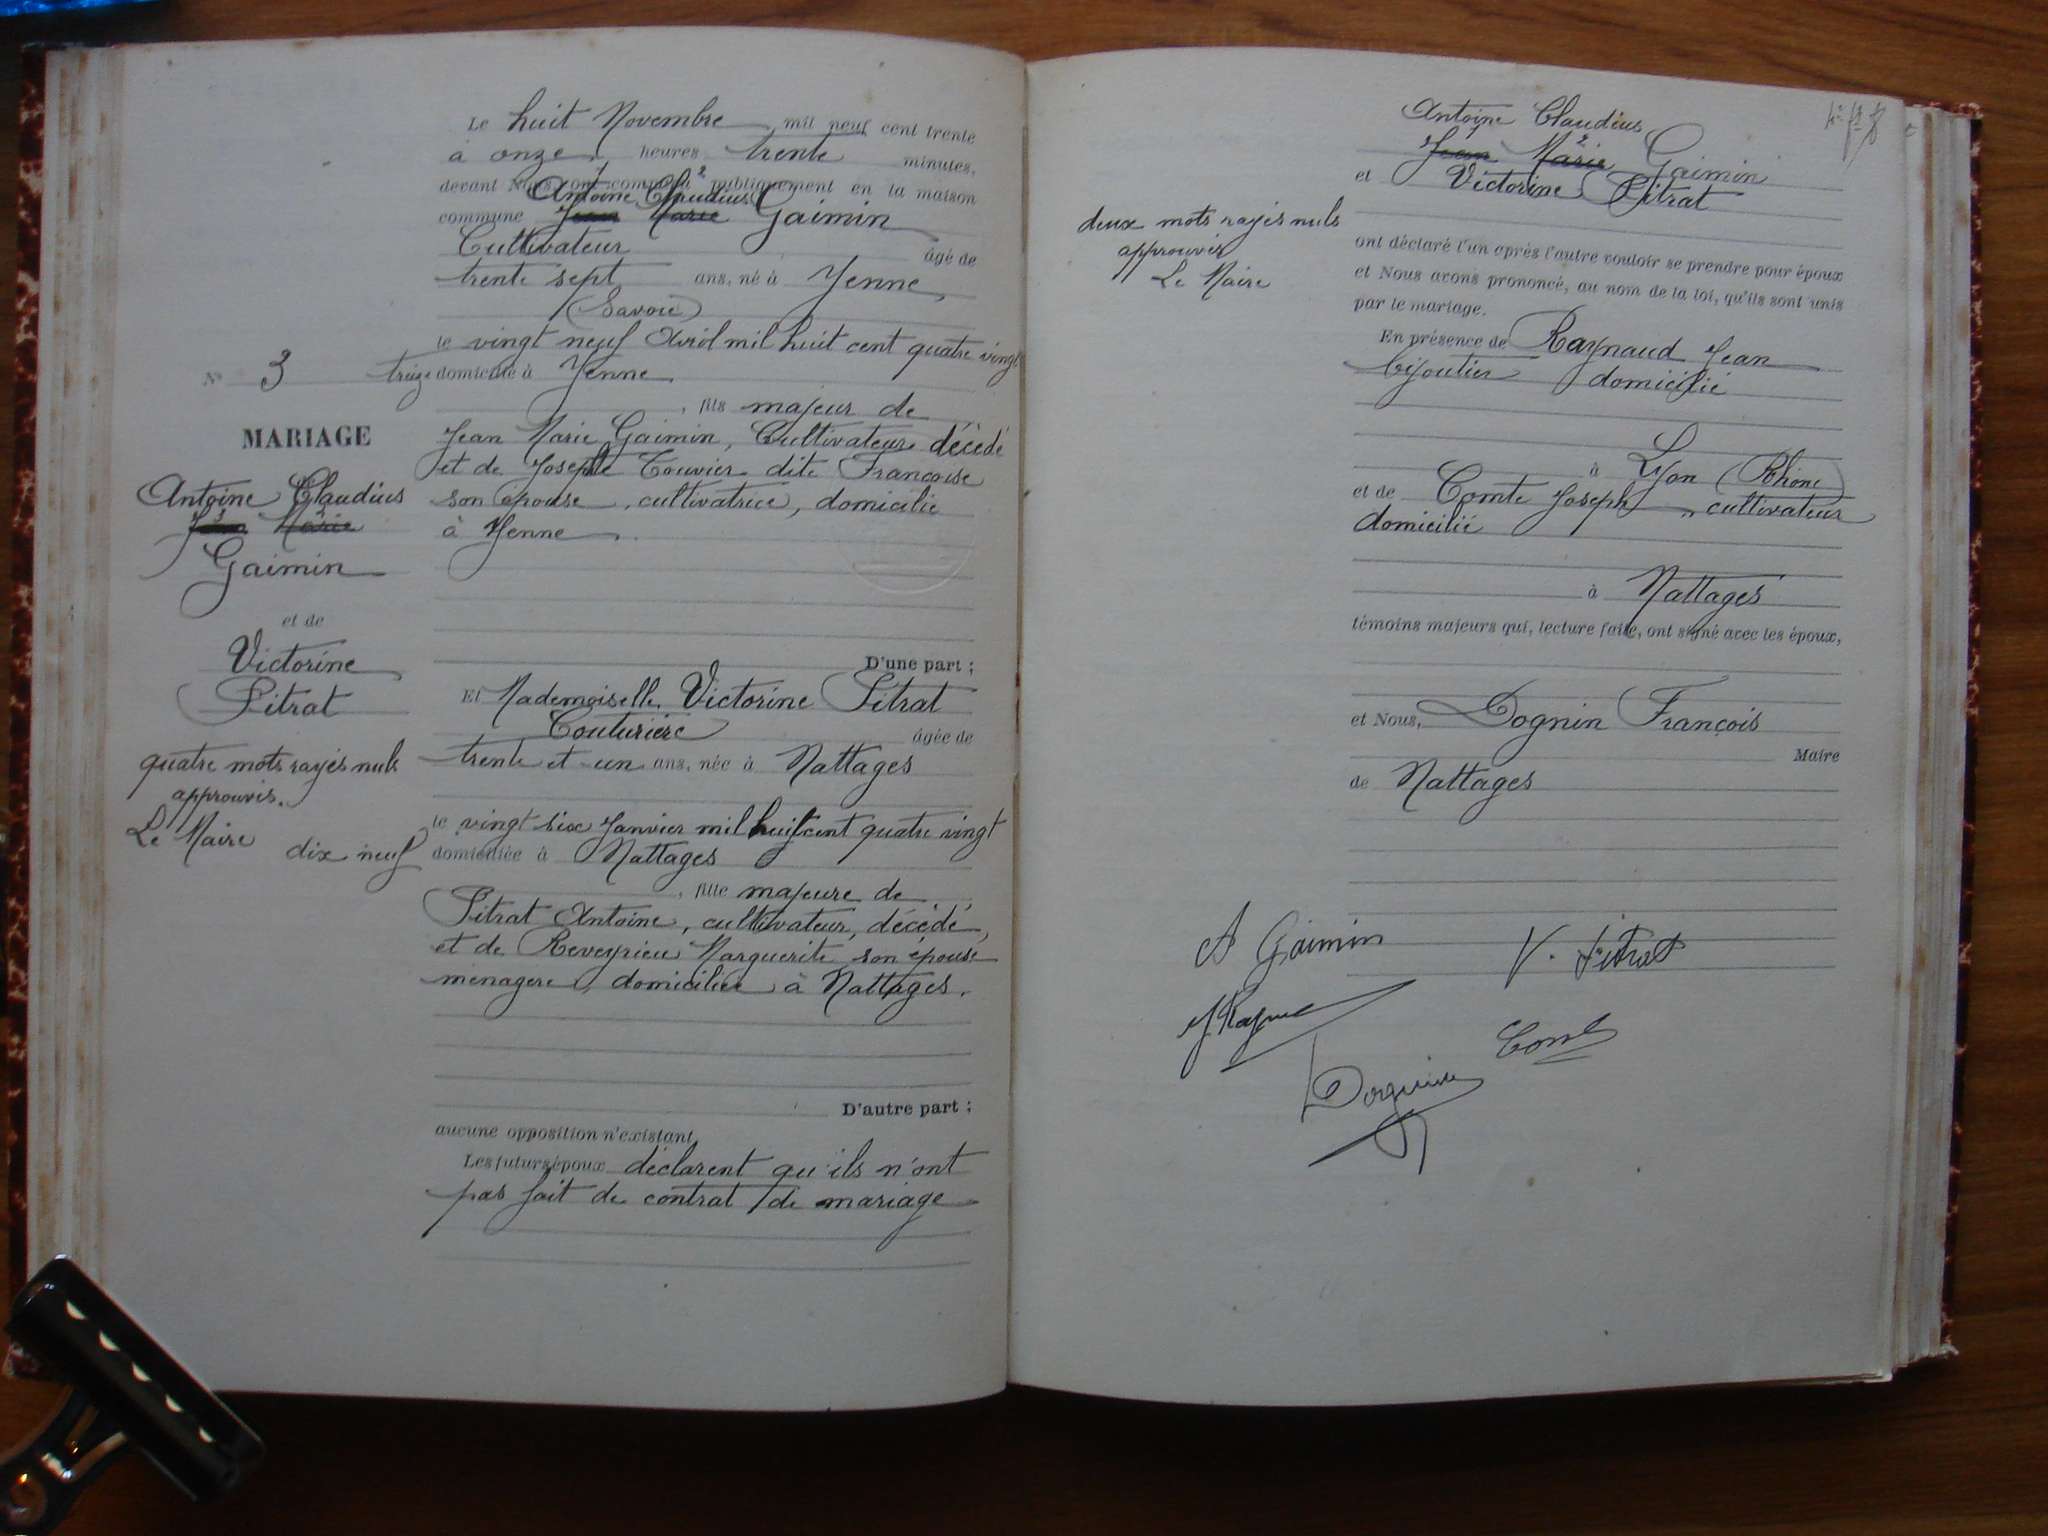 Le huit Novembre mil neuf cent trente
à onze heures trente minutes,
devant Nous ont comparu publiquement en la maison
Antoine Claudius
commune Jean Marie Gaimin
Cultivateur âgé de
trente sept ans, né à Yenne
(Savoie)
le vingt neuf Avril mil huit cent quatre vingt
treize domicilié à Yenne
, fils majeur de
Jean Marie Gaimin, Cultivateur décédé
et de Josephte Touvier dite Françoise
son épouse, cultivatrice, domicilié
à Yenne
D'une part ;
Et Mademoiselle Victorine Pitrat
Couturière âgée de
trente et un ans, née à Nattages
le vingt six Janvier mil huit cent quatre vingt
dix neuf domiciliée à Nattages
, fille majeure de
Pitrat Antoine, cultivateur, décédé,
et de Reveyrieu Marguerite son épouse
ménagère, domiciliée à Nattages.
D'autre part ;
aucune opposition n'existant
Les futurs époux déclarent qu'ils n'ont
pas fait de contrat de mariage
N° 3
MARIAGE
Antoine Claudius
Jean Marie
Gaimin
et de
Victorine
Pitrat
quatre mots rayés nuls
approuvés.
Le Maire
Antoine Claudius
Jean Marie Gaimin
et Victorine Pitrat
deux mots rayés nuls
approuvés
Le Maire
ont déclaré l'un après l'autre vouloir se prendre pour époux
et Nous avons prononcé, au nom de la loi, qu'ils sont unis
par le mariage.
En présence de Raynaud Jean
bijoutier domicilié
à Lyon (Rhône)
et de Comte Joseph, cultivateur
domicilié
à Nattages
témoins majeurs qui, lecture faite, ont signé avec les époux,
et Nous, Dognin François
Maire
de Nattages
A Gaimin V. Pitrat
Dognin